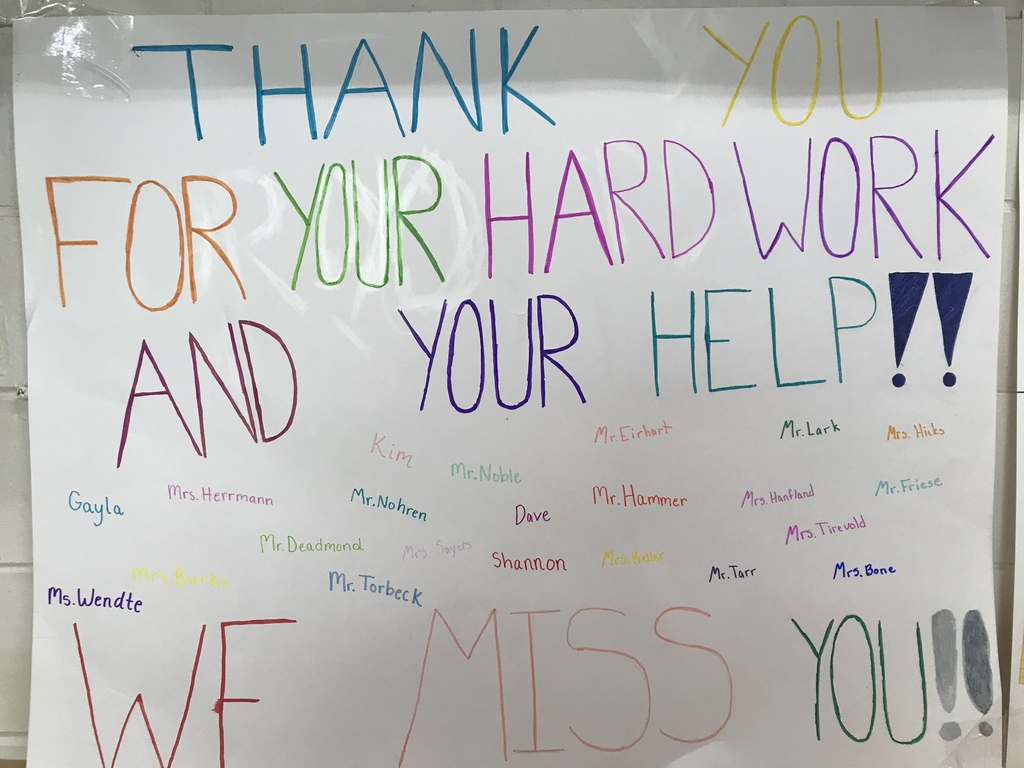 THANK YOU
FOR YOUR HARD WORK
AND YOUR HELP!!
Kim Mr. Eirhart Mr. Lark Mrs. Hicks
Mr. Noble
Gayla Mrs. Herrmann Mr. Nohren Dave Mr. Hammer Mrs. Hanfland Mr. Friese
Mrs. Tirevold
Mr. Deadmond Mrs. Sayers Shannon Mrs.
Mr. Tarr Mrs. Bone
Ms. Wendte Mrs. Burks Mr. Torbeck
WE MISS YOU!!